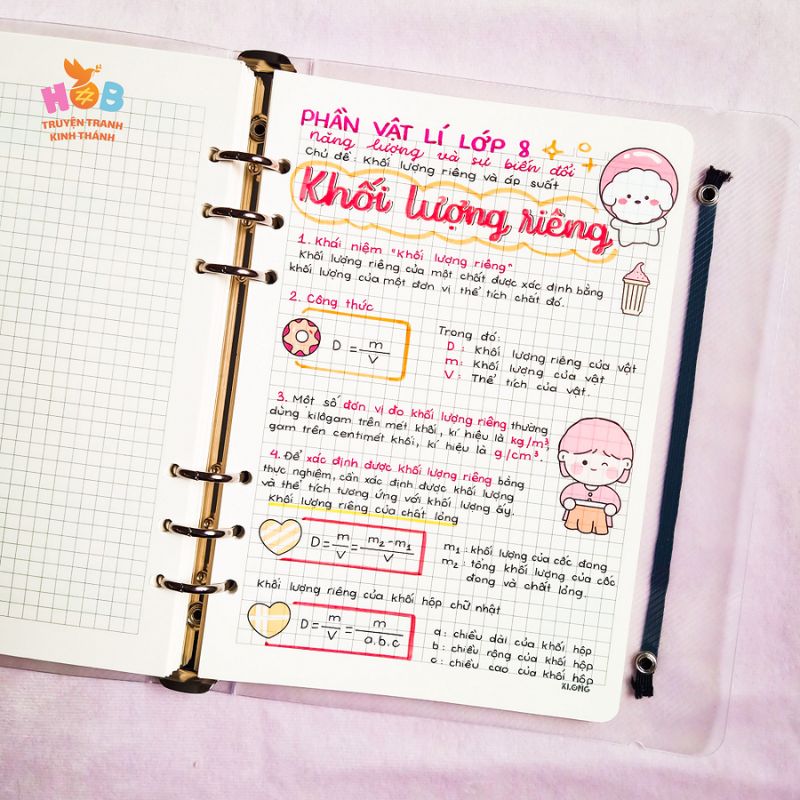 HOB
TRUYỆN TRANH
KINH THÁNH
PHẦN VẬT LÍ LỚP 8
năng lượng và sự biến đổi
Chủ đề : Khối lượng riêng và áp suất
Khối lượng riêng
1. Khái niệm "Khối lượng riêng"
Khối lượng riêng của một chất được xác định bằng
khối lượng của một đơn vị thể tích chất đó.
2. Công thức
D = m/V
Trong đó:
D : Khối lượng riêng của vật
m: Khối lượng của vật
V: Thể tích của vật.
3. Một số đơn vị đo khối lượng riêng thường
dùng kilôgam trên mét khối, kí hiệu là kg/m³,
gam trên centimét khối, kí hiệu là g/cm³.
4. Để xác định được khối lượng riêng bằng
thực nghiệm, cần xác định được khối lượng
và thể tích tương ứng với khối lượng ấy.
Khối lượng riêng của chất lỏng
D = m/V = m₂-m₁/V
m₁ : khối lượng của cốc đong
m₂ : tổng khối lượng của cốc
đong và chất lỏng.
Khối lượng riêng của khối hộp chữ nhật
D = m/V = m/a.b.c
a : chiều dài của khối hộp
b : chiều rộng của khối hộp
c : chiều cao của khối hộp
XI.ONG